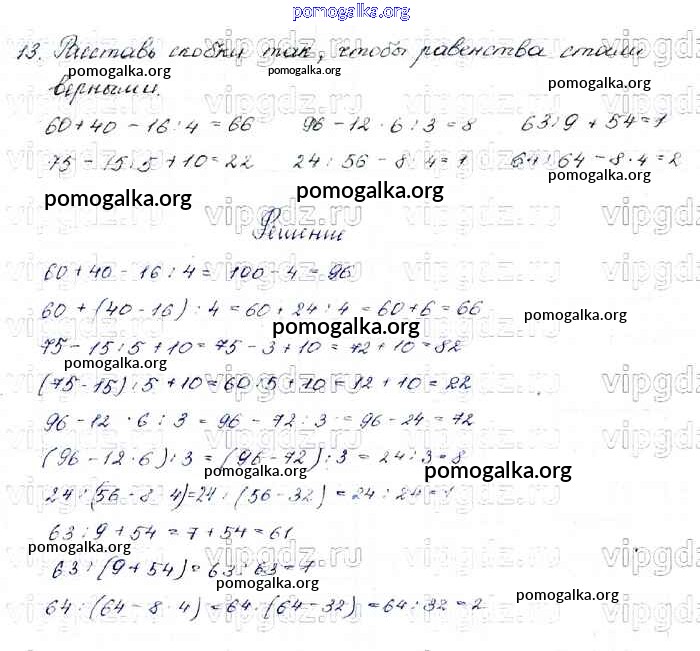 pomogalka.org
13. Расставь скобки так, чтобы равенства стали
pomogalka.org pomogalka.org pomogalka.org
верными.
60+40-16:4=66 96-12·6:3=8 63:9+54=1
75-15:5+10=22 24:56-8·4=1 64:64-8·4=2
pomogalka.org pomogalka.org pomogalka.org
vipgdz.ru vipgdz.ru vipgdz.ru vipgdz.ru
Решение
60+40-16:4=100-4=96
60+(40-16):4=60+24:4=60+6=66
pomogalka.org pomogalka.org
75-15:5+10=75-3+10=72+10=82
pomogalka.org
(75-15):5+10=60:5+10=12+10=22
96-12·6:3=96-72:3=96-24=72
(96-12·6):3=(96-72):3=24:3=8
pomogalka.org pomogalka.org
24:(56-8·4)=24:(56-32)=24:24=1
63:9+54=7+54=61
pomogalka.org
63:(9+54)=63:63=1
pomogalka.org
64:(64-8·4)=64:(64-32)=64:32=2
pomogalka.org pomogalka.org